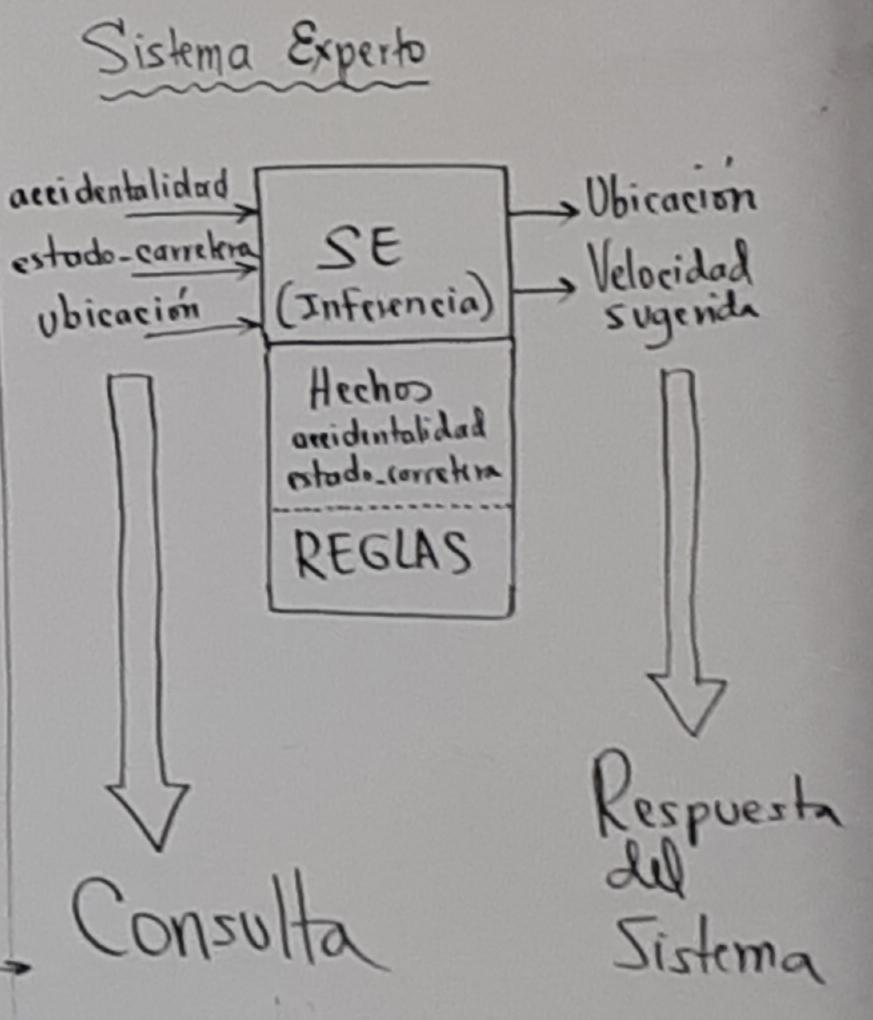 Sistema Experto
accidentalidad
estado-carretera
ubicación
SE
(Inferencia)
Hechos
accidentalidad
estado-carretera
REGLAS
Ubicación
Velocidad
sugerida
Consulta
Respuesta
del
Sistema